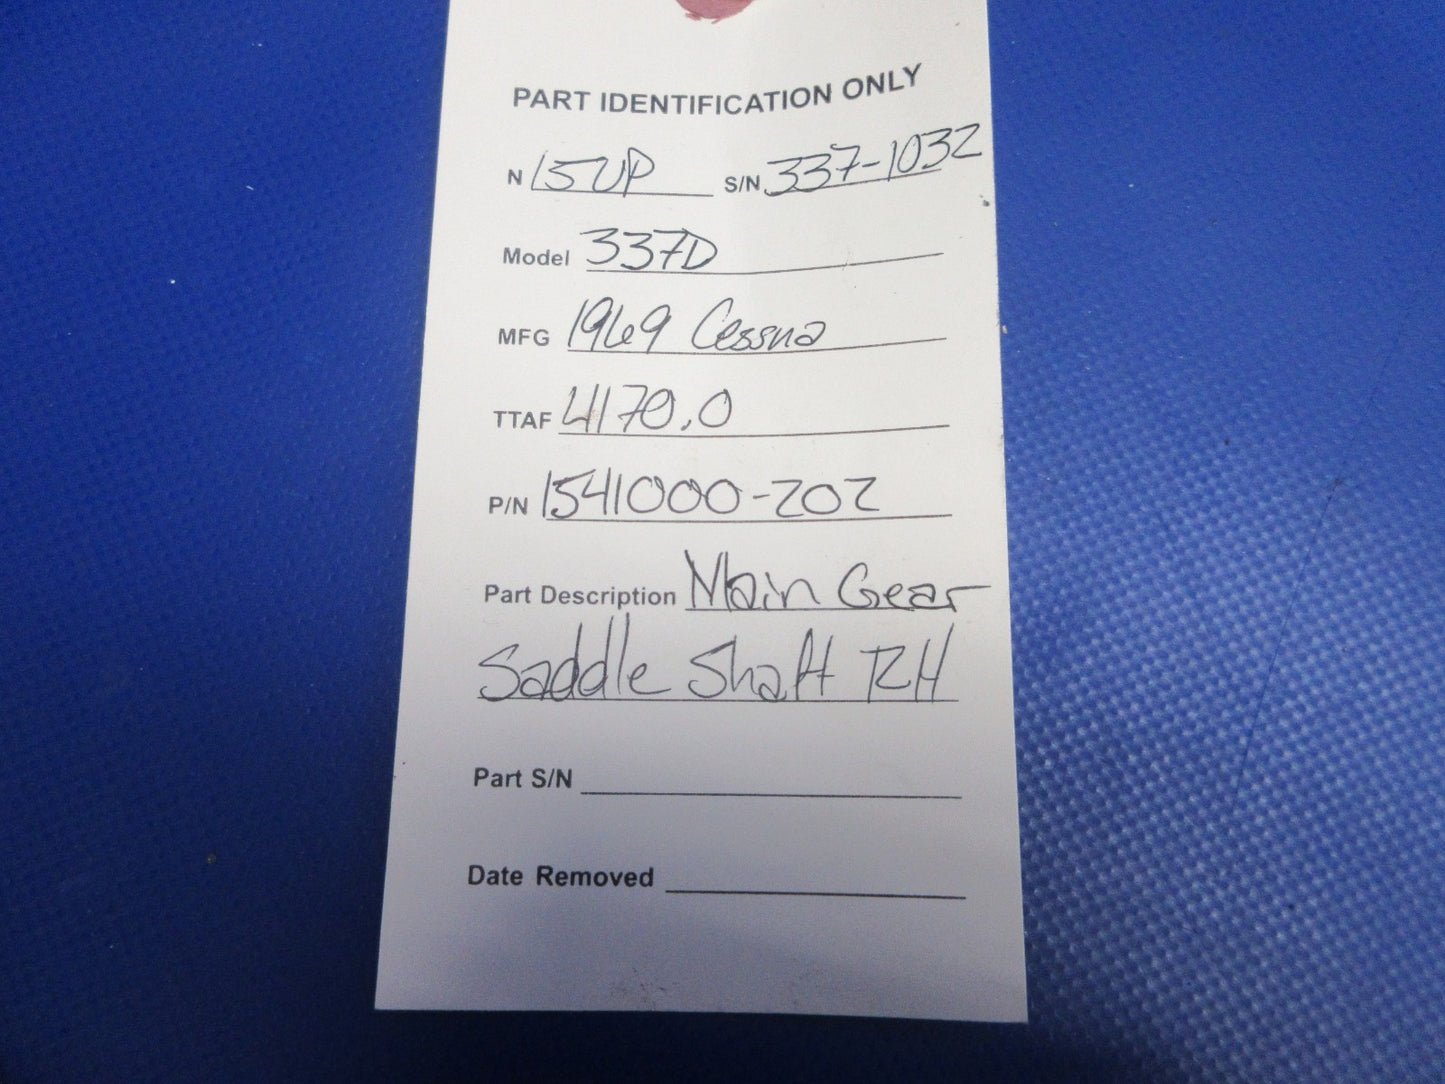 PART IDENTIFICATION ONLY
N 15UP S/N 337-1032
Model 337D
MFG 1969 Cessna
TTAF 4170.0
P/N 1541000-202
Part Description Main Gear
Saddle Shaft RH
Part S/N
Date Removed